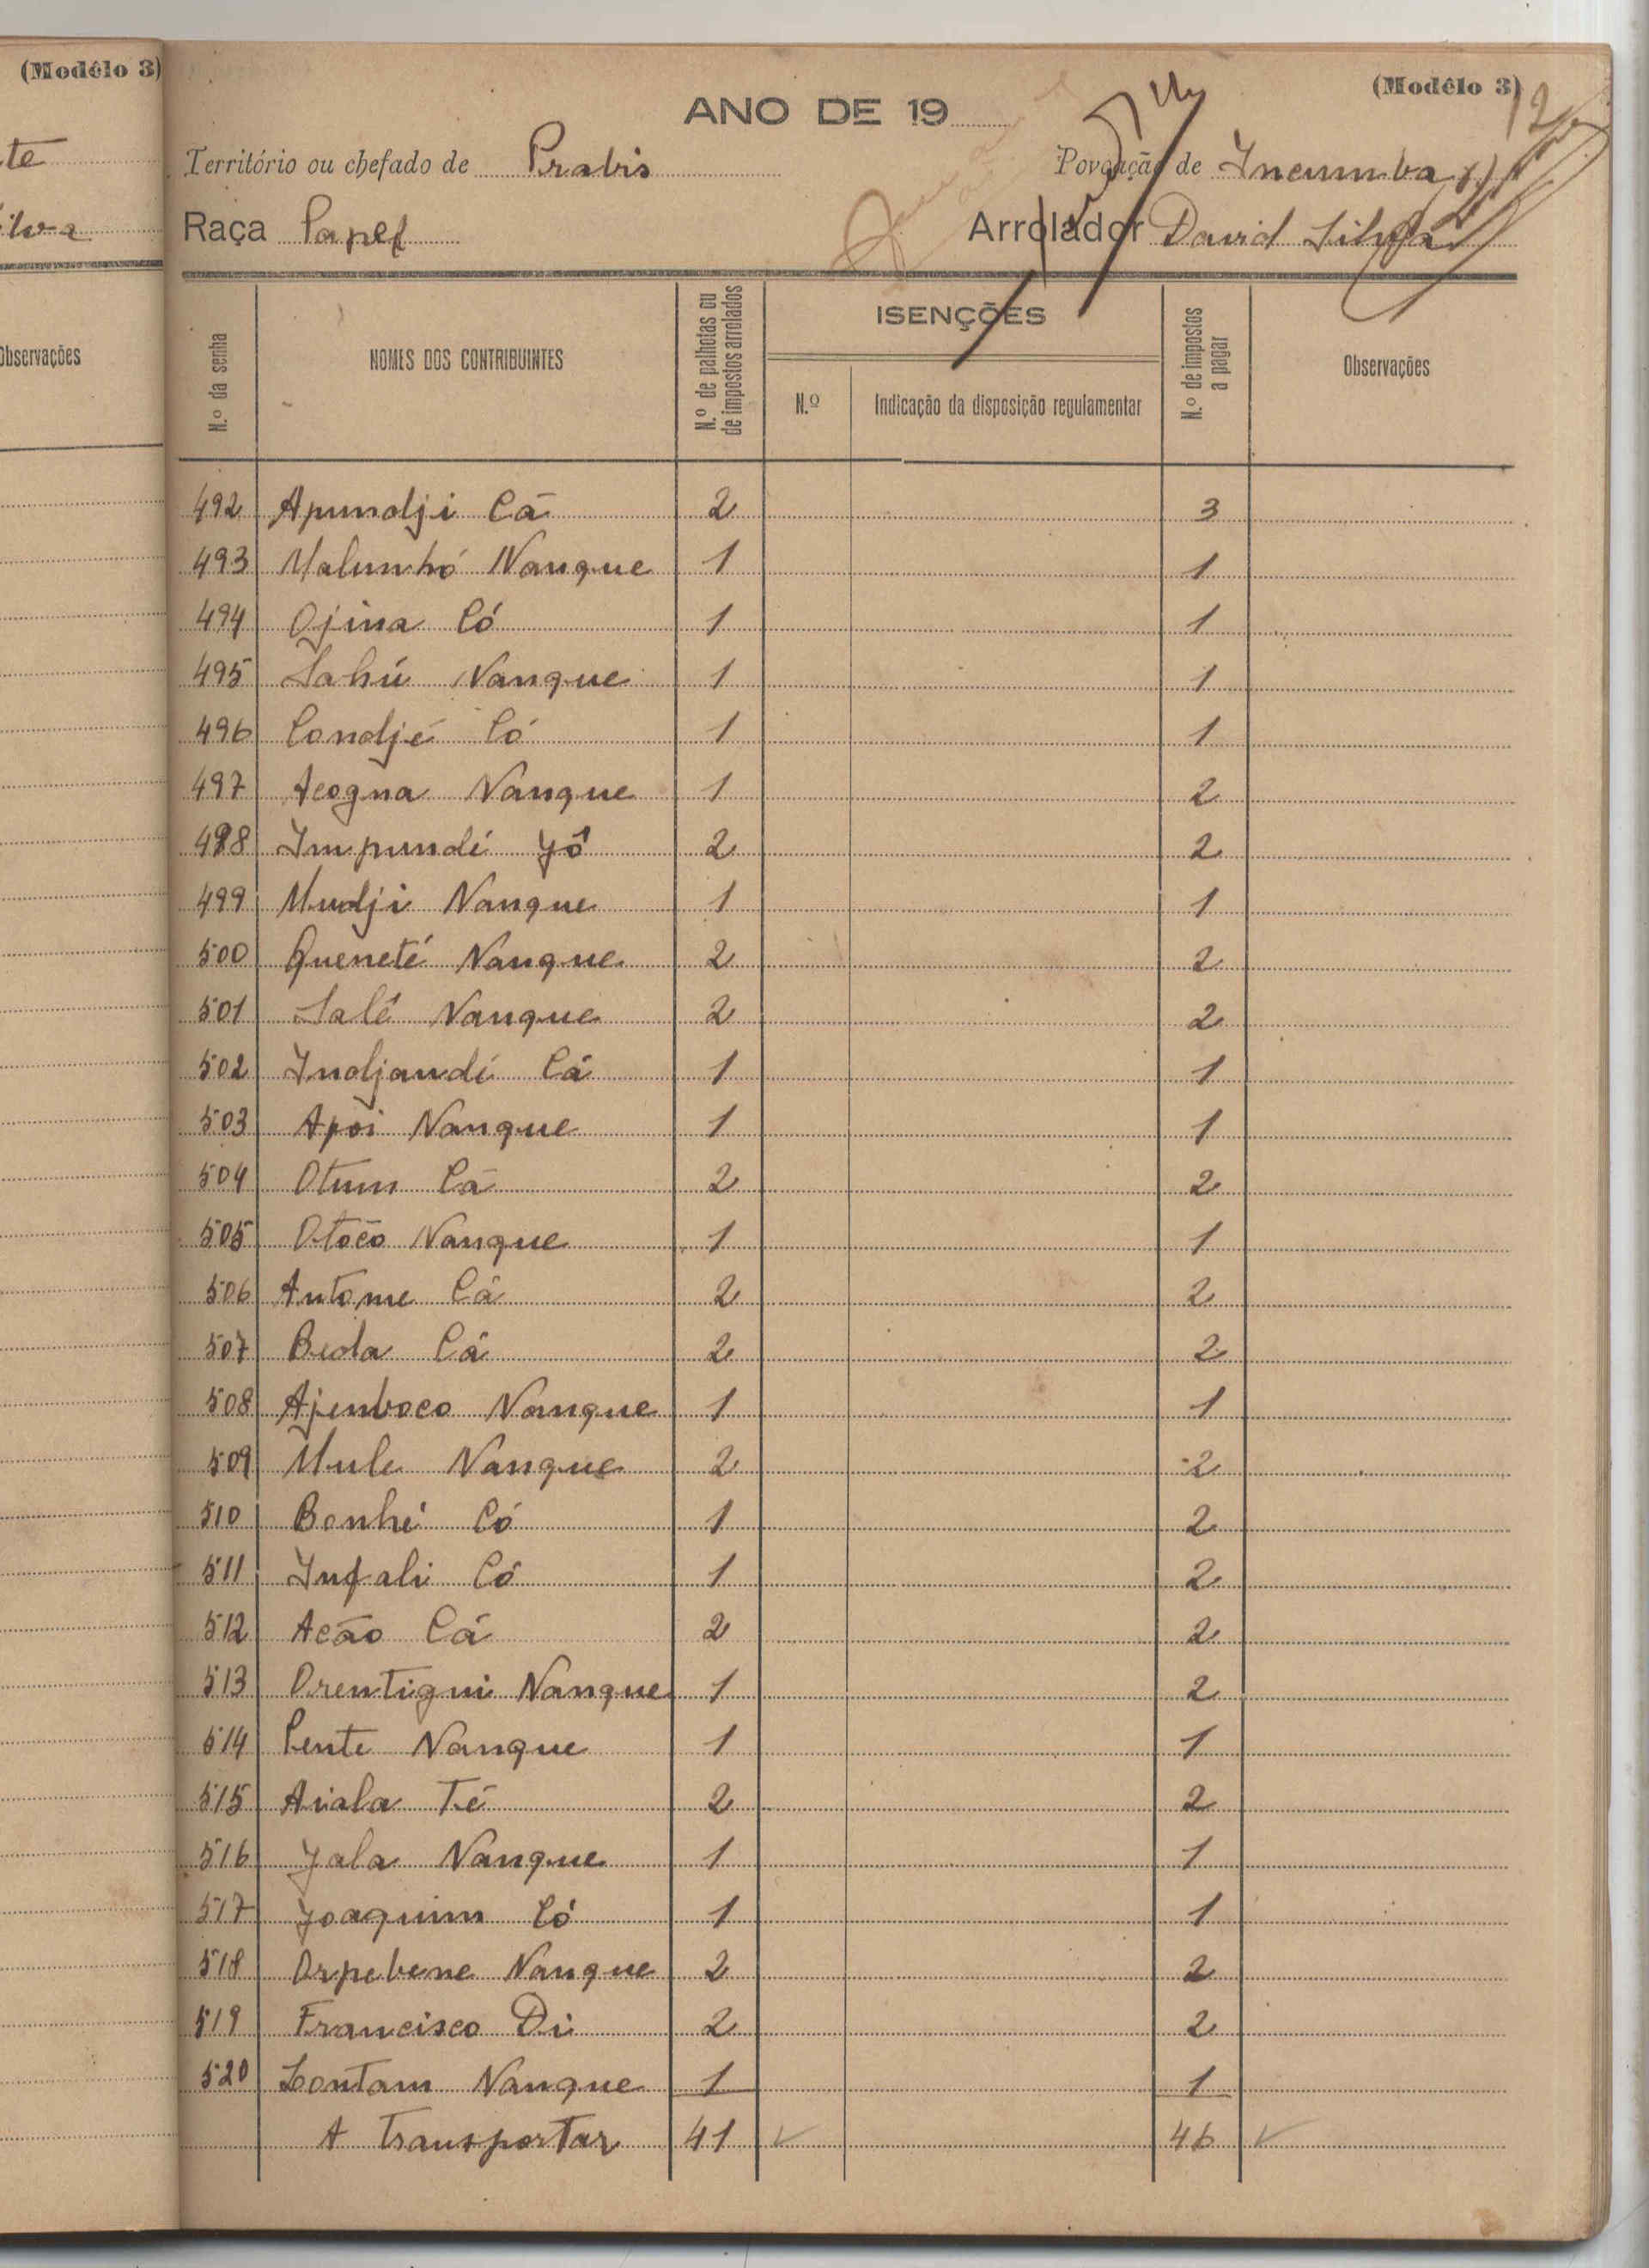 (Modêlo 3)
te
ilva
Observações
(Modêlo 3)
12
ANO DE 19
Território ou chefado de Prabis
Povoação de Incumba
Raça Papel
Arrolador David Silva
N.º da senha
NOMES DOS CONTRIBUINTES
N.º de palhotas ou de impostos arrolados
ISENÇÕES
N.º
Indicação da disposição regulamentar
N.º de impostos a pagar
Observações
492 Apundji Cá 2 3
493 Malunhó Nanque 1 1
494 Ojina Có 1 1
495 Sahú Nanque 1 1
496 Condjé Có 1 1
497 Acogna Nanque 1 2
498 Impundé Yó 2 2
499 Mudji Nanque 1 1
500 Queneté Nanque 2 2
501 Salé Nanque 2 2
502 Indjandé Cá 1 1
503 Apoi Nanque 1 1
504 Otum Cá 2 2
505 Otoco Nanque 1 1
506 Antome Cá 2 2
507 Bida Cá 2 2
508 Ajemboco Nanque 1 1
509 Mule Nanque 2 2
510 Bonhé Có 1 2
511 Infali Có 1 2
512 Acão Cá 2 2
513 Orentigui Nanque 1 2
514 Cente Nanque 1 1
515 Aiala Té 2 2
516 Yala Nanque 1 1
517 Joaquim Có 1 1
518 Orpebene Nanque 2 2
519 Francisco Di 2 2
520 Lontam Nanque 1 1
A transportar 41 46